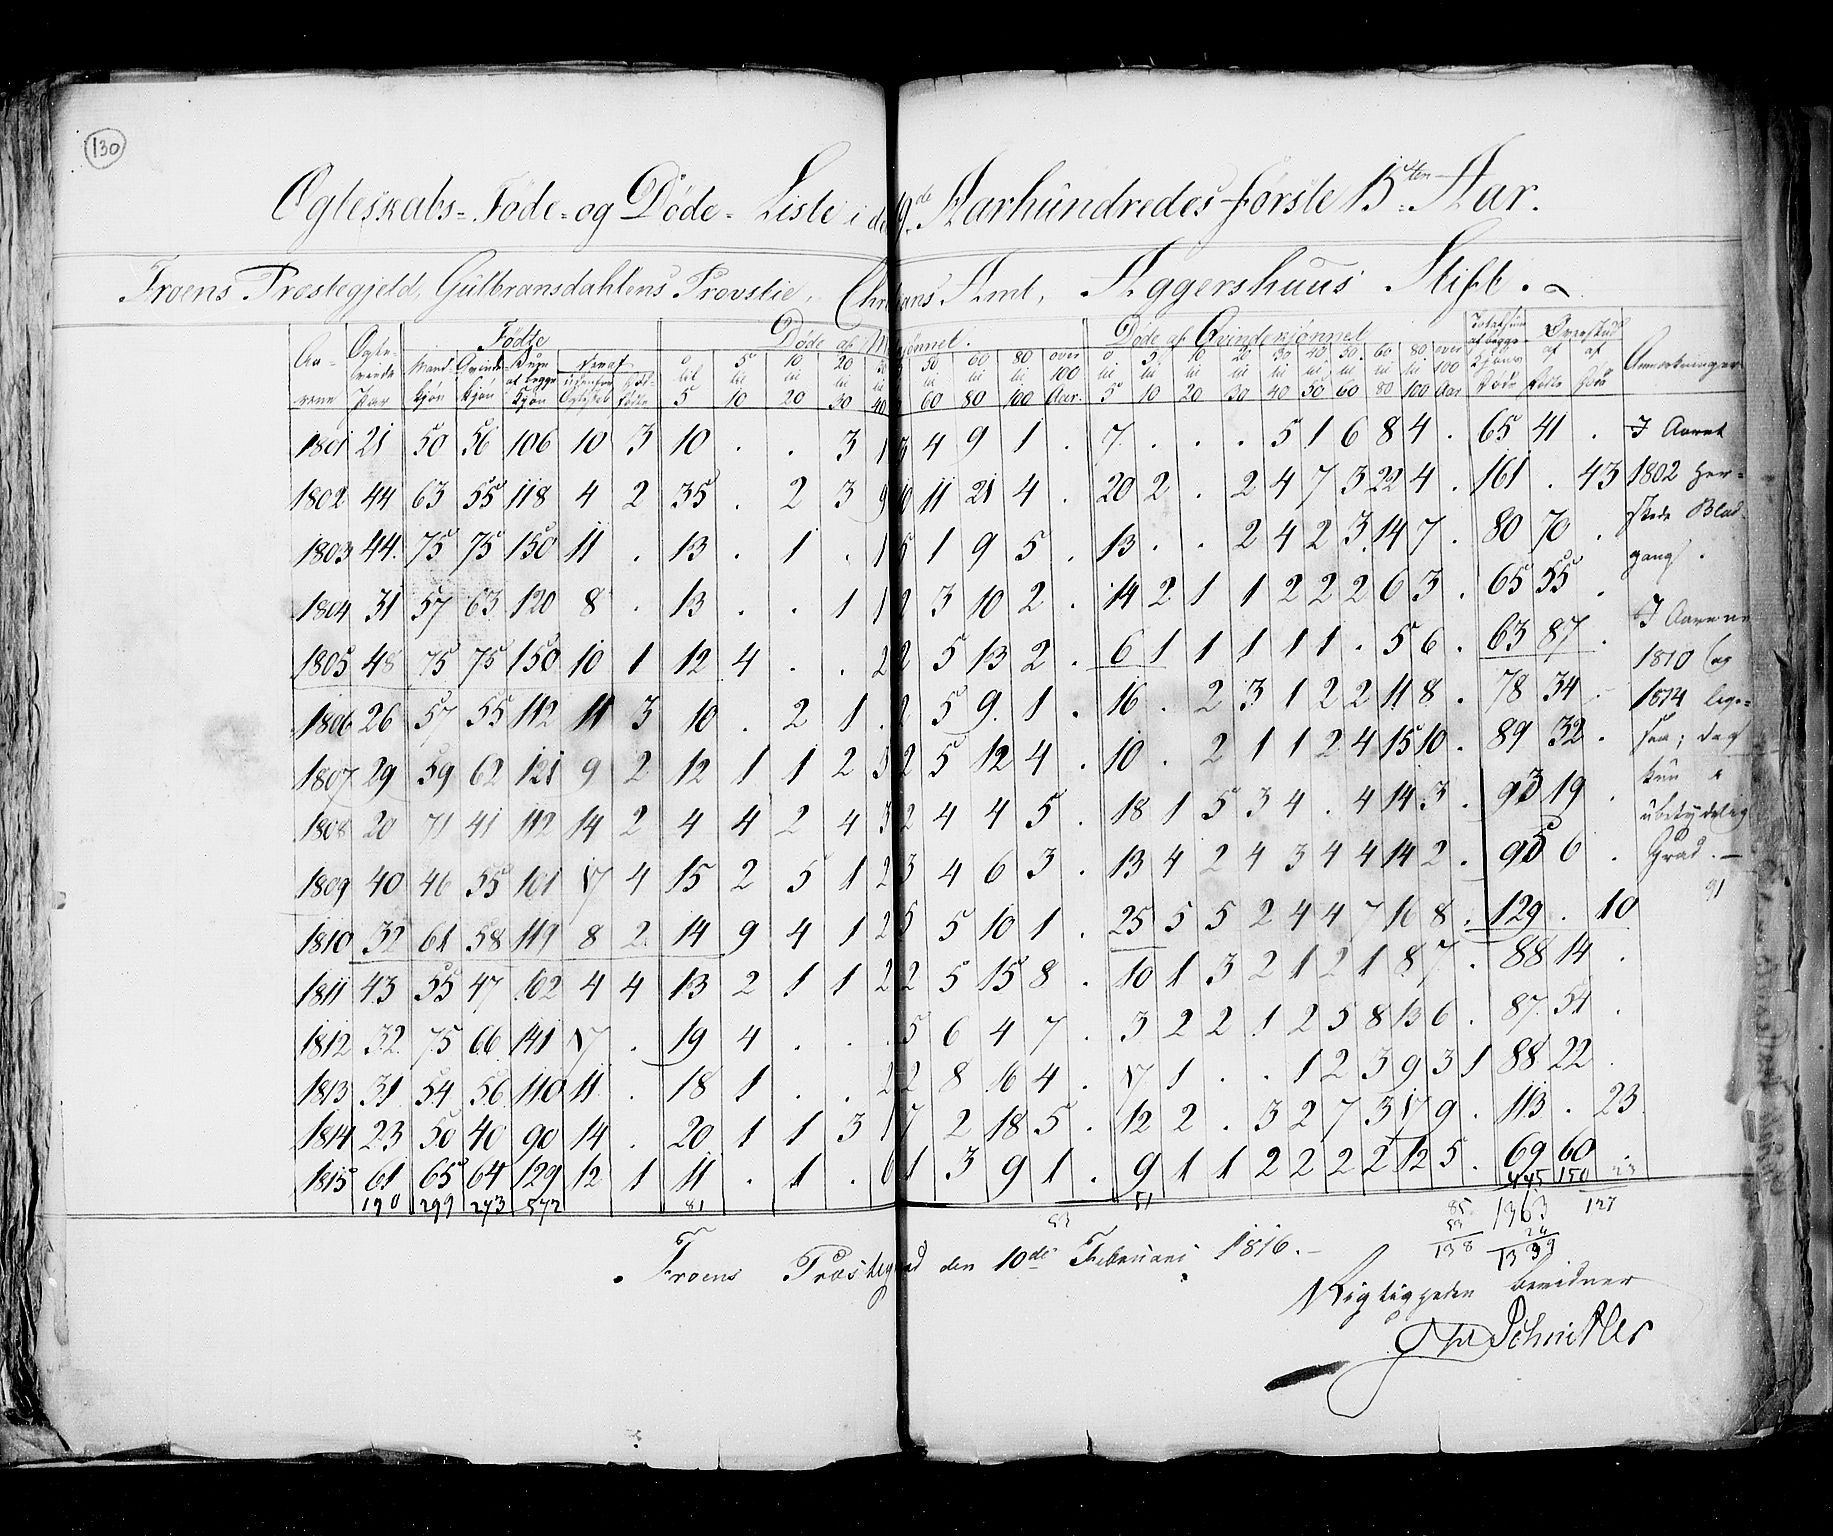 130
Ægteskabs- Føde- og Døde- Liste i det 19de Aarhundredes første 15ten Aar.
Froens Præstegjeld, Gulbransdahlens Provstie, Christians Amt, Aggershuus Stift.
Aarene | Ægtevirde Par | Fødte | Døde af Mandkjønnet. | Døde af Qvindekjønnet | Totalsum af begge Kjøns Døde | Overskud | Anmærkninger
Mandkjøn | Qvindekjøn | Sum af begge Kjøn | deraf | udenfor Ægteskab | dødfødte | 0 til 5 | 5 til 10 | 10 til 20 | 20 til 30 | 30 40 | 50 til 60 | 60 til 80 | 80 til 100 | over 100 Aar. | 0 til 5 | 5 til 10 | 10 til 20 | 20 til 30 | 30 til 40 | 40 til 50 | 50 til 60 | 60 til 80 | 80 til 100 | over 100 Aar | af Fødte | af Døde
1801 21 50 56 106 10 3 10 . . 3 1 3 4 9 1 . 7 . . . 5 1 6 8 4 . 65 41 . I Aaret
1802 44 63 55 118 4 2 35 . 2 3 9 10 11 21 4 . 20 2 . 2 4 7 3 22 4 . 161 . 43 1802 her-
1803 44 75 75 150 11 . 13 . 1 . 1 5 1 9 5 . 13 . . 2 4 2 3 14 7 . 80 70 . skede Blod-
gang.
1804 31 57 63 120 8 . 13 . . 1 1 2 3 10 2 . 14 2 1 1 2 2 2 6 3 . 65 55 .
1805 48 75 75 150 10 1 12 4 . . 2 2 5 13 2 . 6 1 1 1 1 1 . 5 6 . 63 87 . I Aarene
1810 og
1806 26 57 55 112 11 3 10 . 2 1 . 2 5 9 1 . 16 . 2 3 1 2 2 11 8 . 78 34 . 1814 lige-
1807 29 59 62 121 9 2 12 1 1 2 5 2 5 12 4 . 10 . 2 1 1 2 4 15 10 . 89 32 . saa; dog
kun i
1808 20 71 41 112 14 2 4 4 2 4 3 2 4 4 5 . 18 1 5 3 4 . 4 14 3 . 93 19 . ubetydelig
1809 40 46 55 101 17 4 15 2 5 1 2 3 4 6 3 . 13 4 2 4 3 4 4 14 2 . 95 6 . Grad. —
91
1810 32 61 58 119 8 2 14 9 4 1 2 5 5 10 1 . 25 5 5 2 4 4 7 16 8 . 129 . 10
1811 43 55 47 102 4 4 13 2 1 1 2 2 5 15 8 . 10 1 3 2 1 2 1 8 7 . 88 14 .
1812 32 75 66 141 17 . 19 4 . . . 5 6 4 7 . 3 2 2 1 2 5 8 13 6 . 87 54 .
1813 31 54 56 110 11 . 18 1 . . 2 2 8 16 4 . 17 1 . . 1 2 3 9 3 1 88 22 .
1814 23 50 40 90 14 . 20 1 1 3 1 7 2 18 5 . 12 2 . 3 2 7 3 17 9 . 113 . 23
1815 61 65 64 129 12 1 11 . 1 . 6 1 3 9 1 . 9 1 1 2 2 2 2 12 5 . 69 60 .
190 299 273 572 81 51 445 150 23
53 85 1363 127
53 26
138 1389
Froens Præstegaard den 10de Februari 1816. —
Rigtigheden bevidner
Schnitler